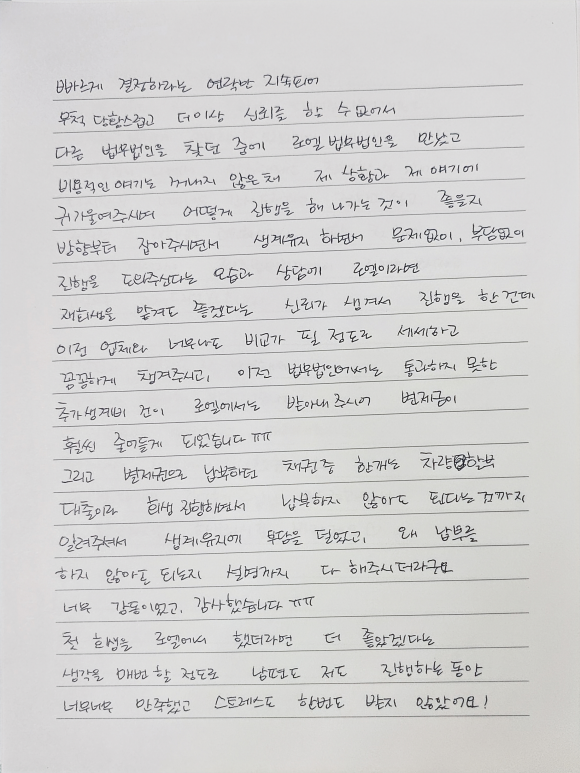 빠르게 결정하라는 연락만 지속되어
무척 당황스럽고 더이상 신뢰를 할 수 없어서
다른 법무법인을 찾던 중에 로엘 법무법인을 만났고
비용적인 얘기는 꺼내지 않은채 제 상황과 제 얘기에
귀기울여주시며 어떻게 진행을 해 나가는 것이 좋을지
방향부터 잡아주시면서 생계유지 하면서 문제없이, 부담없이
진행을 도와주신다는 모습과 상담에 로엘이라면
재회생을 맡겨도 좋겠다는 신뢰가 생겨서 진행을 한건데
이전 업체와 너무나도 비교가 될 정도로 세세하고
꼼꼼하게 챙겨주시고, 이전 법무법인에서는 통과하지 못한
추가생계비 건이 로엘에서는 받아내주시어 변제금이
훨씬 줄어들게 되었습니다 ㅠㅠ
그리고 변제권으로 납부하던 채권중 한개는 차량할부
대출이라 회생 진행하면서 납부하지 않아도 된다는 것까지
알려주셔서 생계유지에 부담을 덜었고, 왜 납부를
하지 않아도 되는지 설명까지 다 해주시더라구요
너무 감동이었고, 감사했습니다 ㅠㅠ
첫 회생을 로엘에서 했더라면 더 좋았겠다는
생각을 매번 할 정도로 남편도 저도 진행하는 동안
너무너무 만족했고 스트레스도 한번도 받지 않았어요!